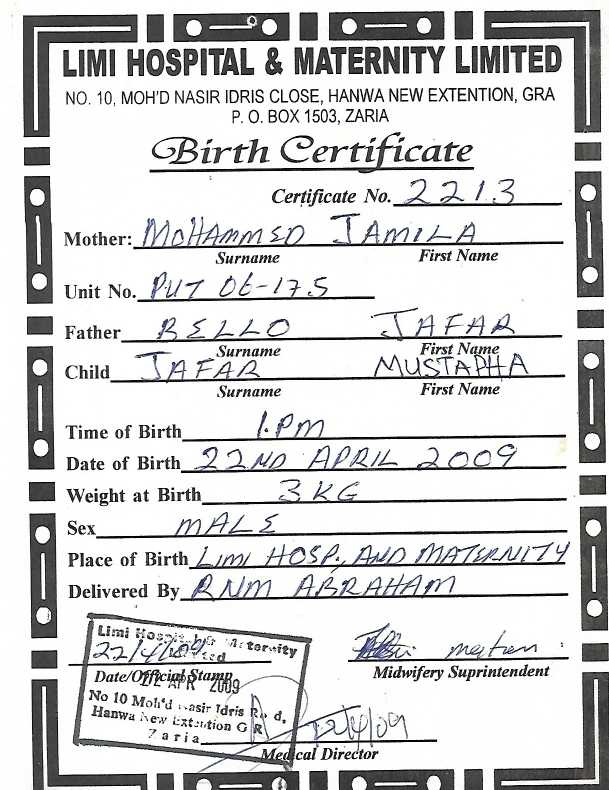 LIMI HOSPITAL & MATERNITY LIMITED
NO. 10, MOH'D NASIR IDRIS CLOSE, HANWA NEW EXTENTION, GRA
P. O. BOX 1503, ZARIA
Birth Certificate
Certificate No. 2213
Mother: MOHAMMED JAMILA
Surname First Name
Unit No. PUT 06-175
Father BELLO JAFAR
Surname First Name
Child JAFAR MUSTAPHA
Surname First Name
Time of Birth 1.PM
Date of Birth 22ND APRIL 2009
Weight at Birth 3KG
Sex MALE
Place of Birth LIMI HOSP., AND MATERNITY
Delivered By RNM ABRAHAM
Limi Hospital & Maternity
Limited
22/4/09
Date/Official Stamp
22 APR 2009
Midwifery Suprintendent
No 10 Moh'd Nasir Idris Road,
Hanwa New Extention G R
Zaria
22/4/09
Medical Director